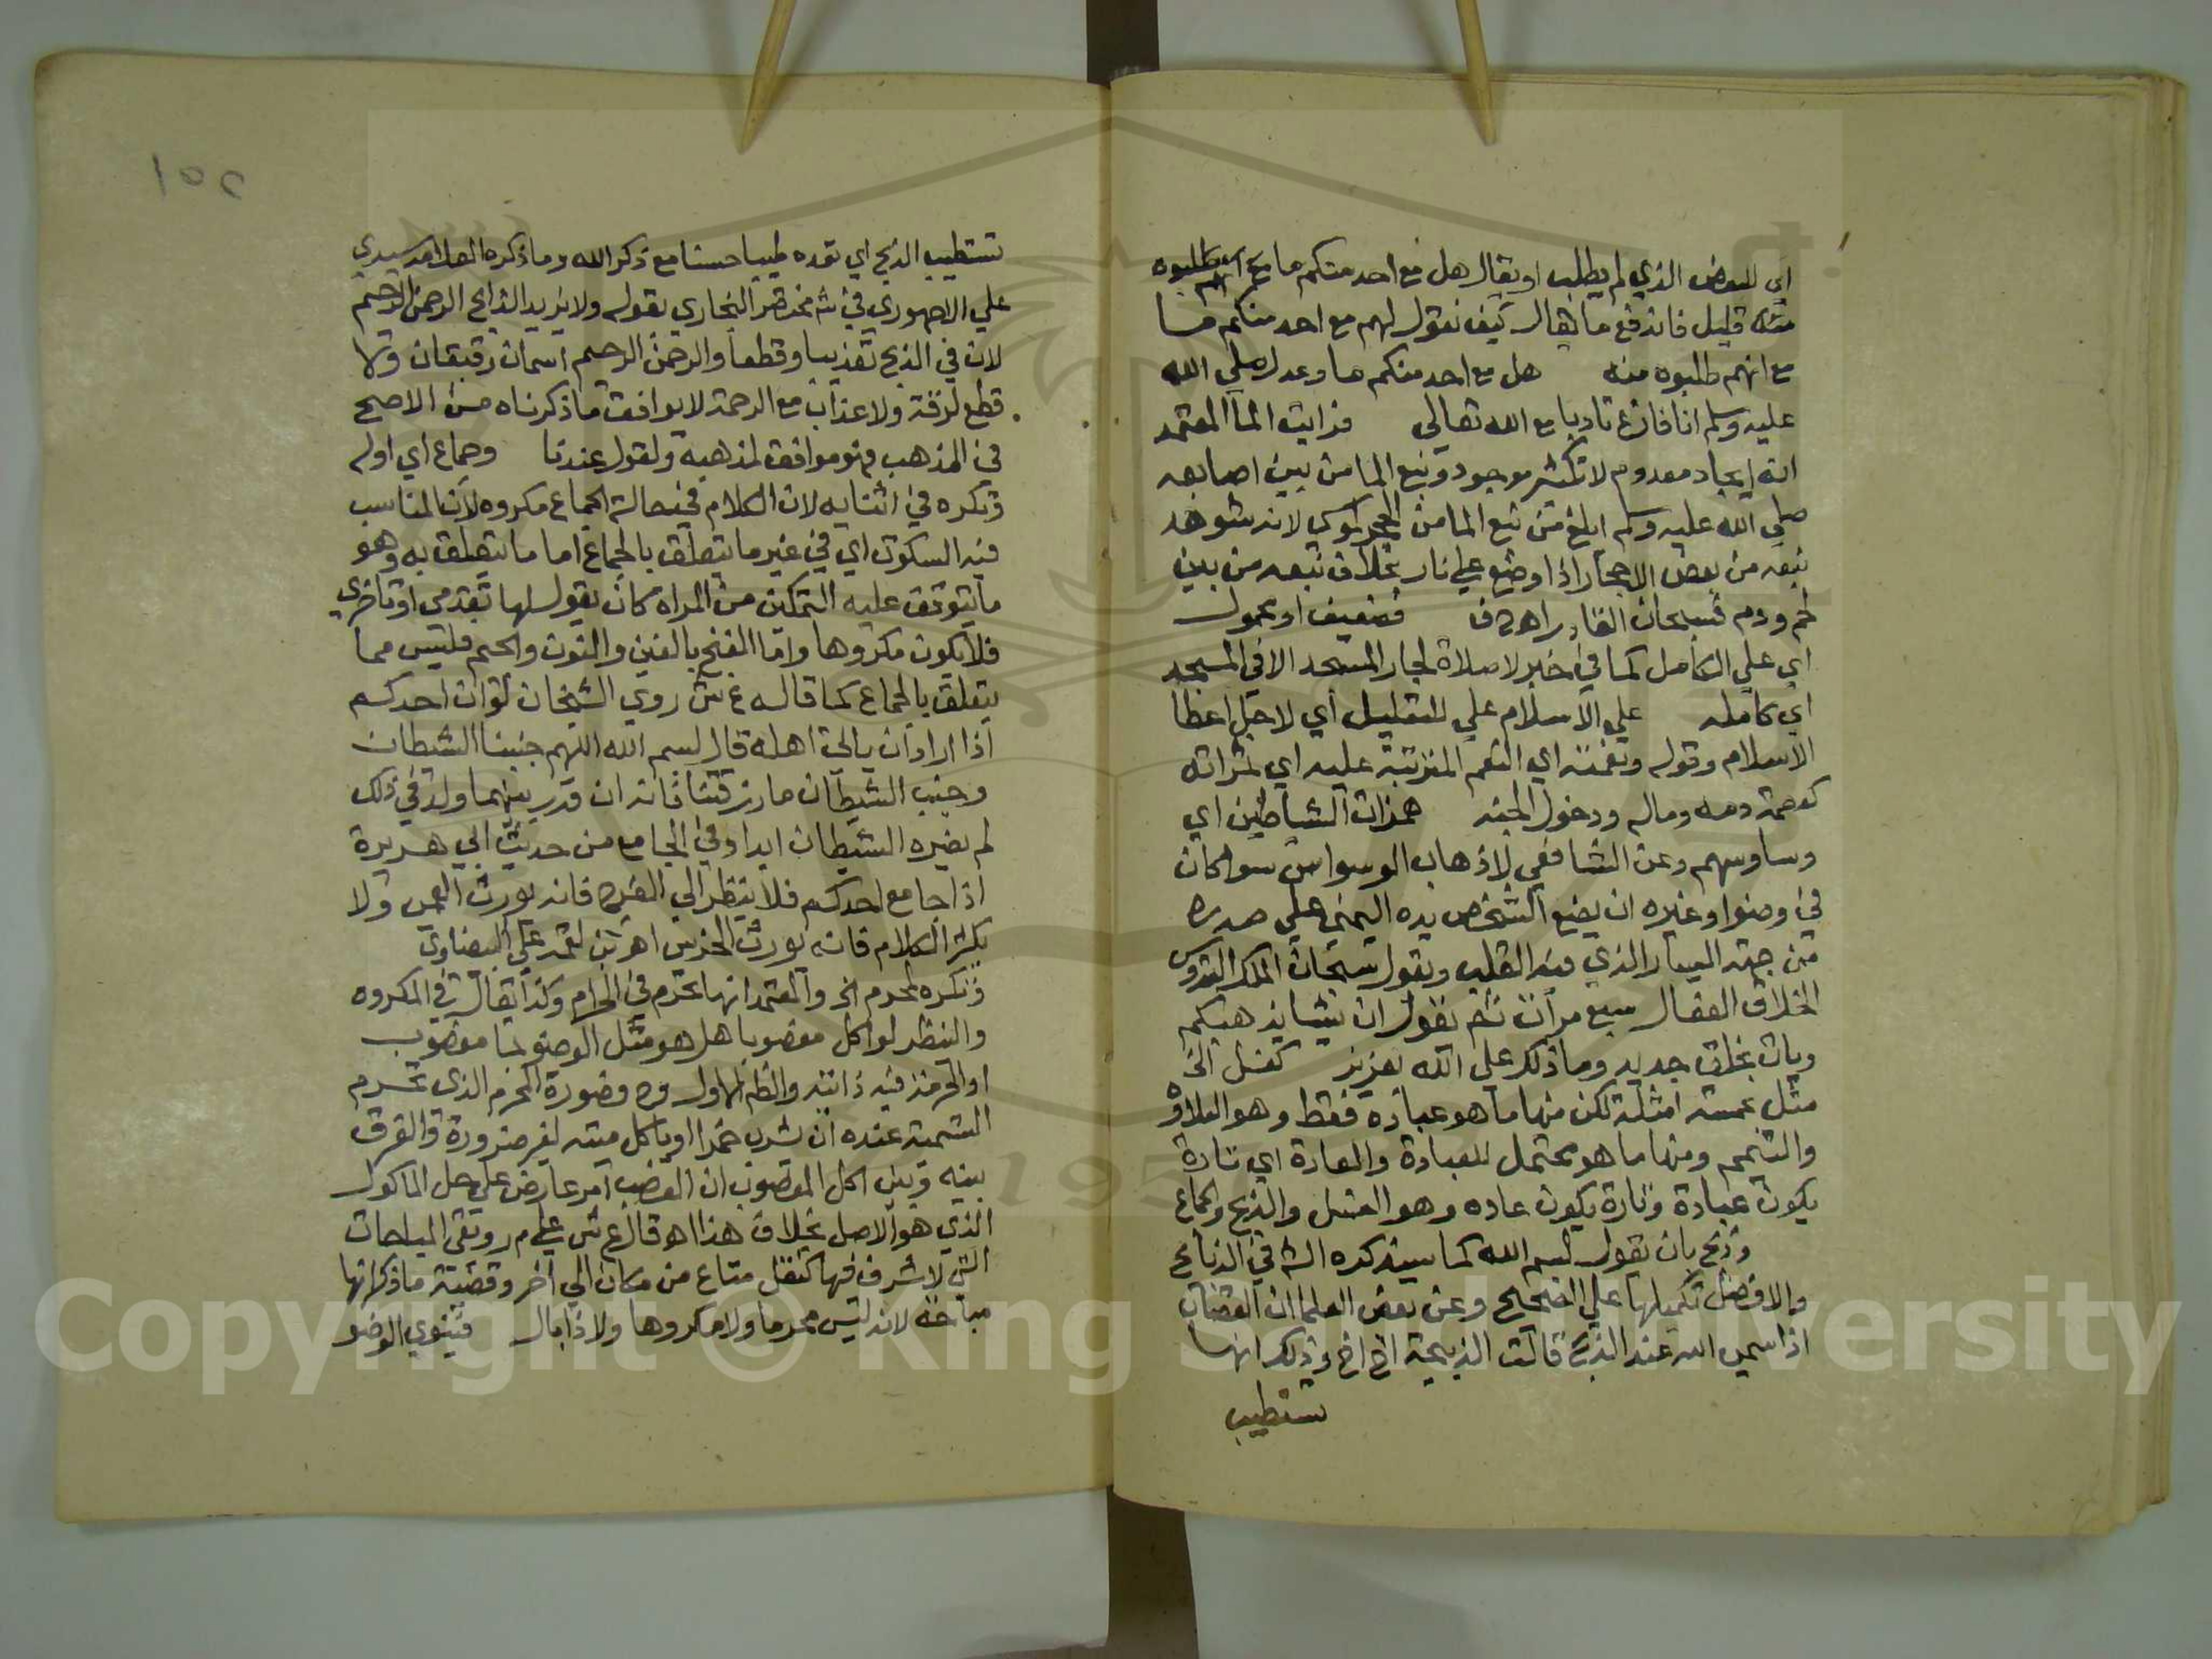 اي للبعض الذي لم يطلب او يقال هل مع احد منكم ما مع انهم طلبوه
منه قليل فاندفع ما يقال كيف نقول لهم مع احد منكم ما
مع انهم طلبوه منه هل مع احد منكم ما وعدل صلي الله
عليه وسلم انا فارغ تادبا مع الله تعالي فرايت الما المعتمد
انه ايجاد معدوم لا تكثير موجود ونبع الما من بين اصابعه
صلي الله عليه وسلم ابلغ من نبع الما من الحجر لموسى لانه شوهد
نبعه من بعض الاحجار اذا وضع علي نار بخلاف نبعه من بين
لحم ودم فسبحان القادر اهـ فضعيف او محمول
اي علي الكامل كما في خبر لا صلاة لجار المسجد الا في المسجد
اي كامله علي الاسلام علي للتعليل اي لاجل اعطا
الاسلام وقوله ونعمته اي النعم المترتبة عليه اي ثمراته
كعصمة دمه وماله ودخول الجنه همزات الشياطين اي
وساوسهم وعن الشافعي لاذهاب الوسواس سوا كان
في وضوا وغيره ان يضع الشخص يده اليمني علي صدره
من جهة اليسار الذي فيه القلب ويقول سبحان الملك القدوس
الخلاق الفعال سبع مرات ثم تقول ان يشا يذهبكم
ويات بخلق جديد وما ذلك علي الله بعزيز كغسل الخ
مثل بخمسة امثلة لكن منها ما هو عبادة فقط وهو التلاوة
والتيمم ومنها ما هو محتمل للعبادة والعادة اي تارة
يكون عبادة وتارة يكون عاده وهو الغسل والذبح والجماع
وذبح بان يقول بسم الله كما سيذكره الش في الذبائح
والافضل تكميلها علي الصحيح وعن بعض العلما ان القصاب
اذا سمي الله عند الذبح قالت الذبيحة اخ اخ وذلك انها
تستطيب
١٥٢
تستطيب الذبح اي تعده طيبا حسنا مع ذكر الله وما ذكره العلامة سيدي
علي الاجهوري في ش مختصر البخاري بقوله ولا يزيد الذابح الرحمن الرحيم
لان في الذبح تعذيبا وقطعا والرحمن الرحيم اسمان رقيقان ولا
قطع لرقة ولا عذاب مع الرحمة لا يوافق ما ذكرناه من الاصح
في المذهب فهو موافق لمذهبه ولقول عندنا وجماع اي اوله
وتكره في اثنايه لان الكلام في حالة الجماع مكروه لان المناسب
فيه السكوت اي في غير ما يتعلق بالجماع اما ما يتعلق به وهو
ما يتوقف عليه التمكين من المراة كان يقول لها تقدمي او تاخري
فلا يكون مكروها واما الغنج بالغين والنون والجيم فليس مما
يتعلق بالجماع كما قاله ع ش روي الشيخان لو ان احدكم
اذا اراد ان ياتي اهله قال بسم الله اللهم جنبنا الشيطان
وجنب الشيطان ما رزقتنا فانه ان قدر بينهما ولد في ذلك
لم يضره الشيطان ابدا وفي الجامع من حديث ابي هريرة
اذا جامع احدكم فلا ينظر الي الفرج فانه يورث العمى ولا
يكثر الكلام فانه يورث الخرس اهـ علي البيضاوي
وتكره لمحرم الخ والمعتمد انها تحرم في الحرام وكذا يقال في المكروه
والنظر لو اكل مغصوبا هل هو مثل الوضو بما مغصوب
او الحرمة فيه ذاتيه والظم الاول وح فصورة المحرم الذي تحرم
التسمية عنده ان يشرب خمرا او ياكل ميتة لغير ضرورة والفرق
بينه وبين اكل المغصوب ان الغضب امر عارض علي حل الماكول
الذي هو الاصل بخلاف هذا اهـ قال ع ش علي م ر وبقي المباحات
التي لا شرف فيها كنقل متاع من مكان الي اخر وقضية ما ذكر انها
مباحة لانه ليس محرما ولا مكروها ولا ذا بال فينوي الوضو
Copyright © King Saud University
1957